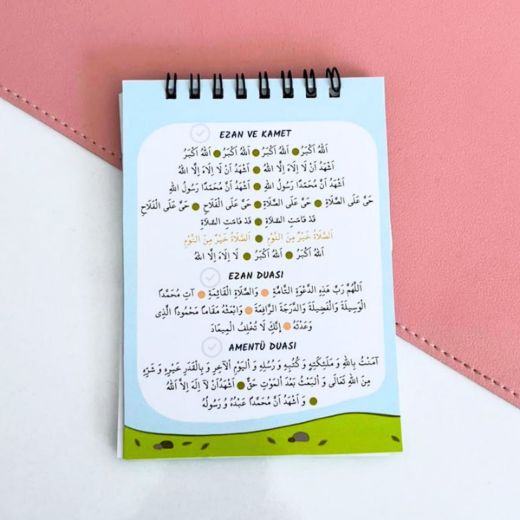 EZAN VE KAMET
اَللّٰهُ اَكْبَرُ ● اَللّٰهُ اَكْبَرُ ● اَللّٰهُ اَكْبَرُ ● اَللّٰهُ اَكْبَرُ
اَشْهَدُ اَنْ لَا اِلٰهَ اِلَّا اللّٰهُ ● اَشْهَدُ اَنْ لَا اِلٰهَ اِلَّا اللّٰهُ
اَشْهَدُ اَنَّ مُحَمَّدًا رَسُولُ اللّٰهِ ● اَشْهَدُ اَنَّ مُحَمَّدًا رَسُولُ اللّٰهِ
حَيَّ عَلَى الصَّلَاةِ ● حَيَّ عَلَى الصَّلَاةِ ● حَيَّ عَلَى الْفَلَاحِ ● حَيَّ عَلَى الْفَلَاحِ
قَدْ قَامَتِ الصَّلَاةُ ● قَدْ قَامَتِ الصَّلَاةُ
اَلصَّلَاةُ خَيْرٌ مِنَ النَّوْمِ ● اَلصَّلَاةُ خَيْرٌ مِنَ النَّوْمِ
اَللّٰهُ اَكْبَرُ ● اَللّٰهُ اَكْبَرُ ● لَا اِلٰهَ اِلَّا اللّٰهُ
EZAN DUASI
اَللّٰهُمَّ رَبَّ هٰذِهِ الدَّعْوَةِ التَّامَّةِ ● وَالصَّلَاةِ الْقَائِمَةِ ● اٰتِ مُحَمَّدًا
الْوَسِيلَةَ وَالْفَضِيلَةَ وَالدَّرَجَةَ الرَّافِعَةَ ● وَابْعَثْهُ مَقَامًا مَحْمُودًا الَّذِى
وَعَدْتَهُ ● اِنَّكَ لَا تُخْلِفُ الْمِيعَادَ
AMENTÜ DUASI
اٰمَنْتُ بِاللّٰهِ وَ مَلٰئِكَتِهِ وَ كُتُبِهِ وَ رُسُلِهِ وَ الْيَوْمِ الْاٰخِرِ وَ بِالْقَدَرِ خَيْرِهِ وَ شَرِّهِ
مِنَ اللّٰهِ تَعَالٰى وَ الْبَعْثُ بَعْدَ الْمَوْتِ حَقٌّ ● اَشْهَدُ اَنْ لَا اِلٰهَ اِلَّا اللّٰهُ
● وَ اَشْهَدُ اَنَّ مُحَمَّدًا عَبْدُهُ وَ رَسُولُهُ